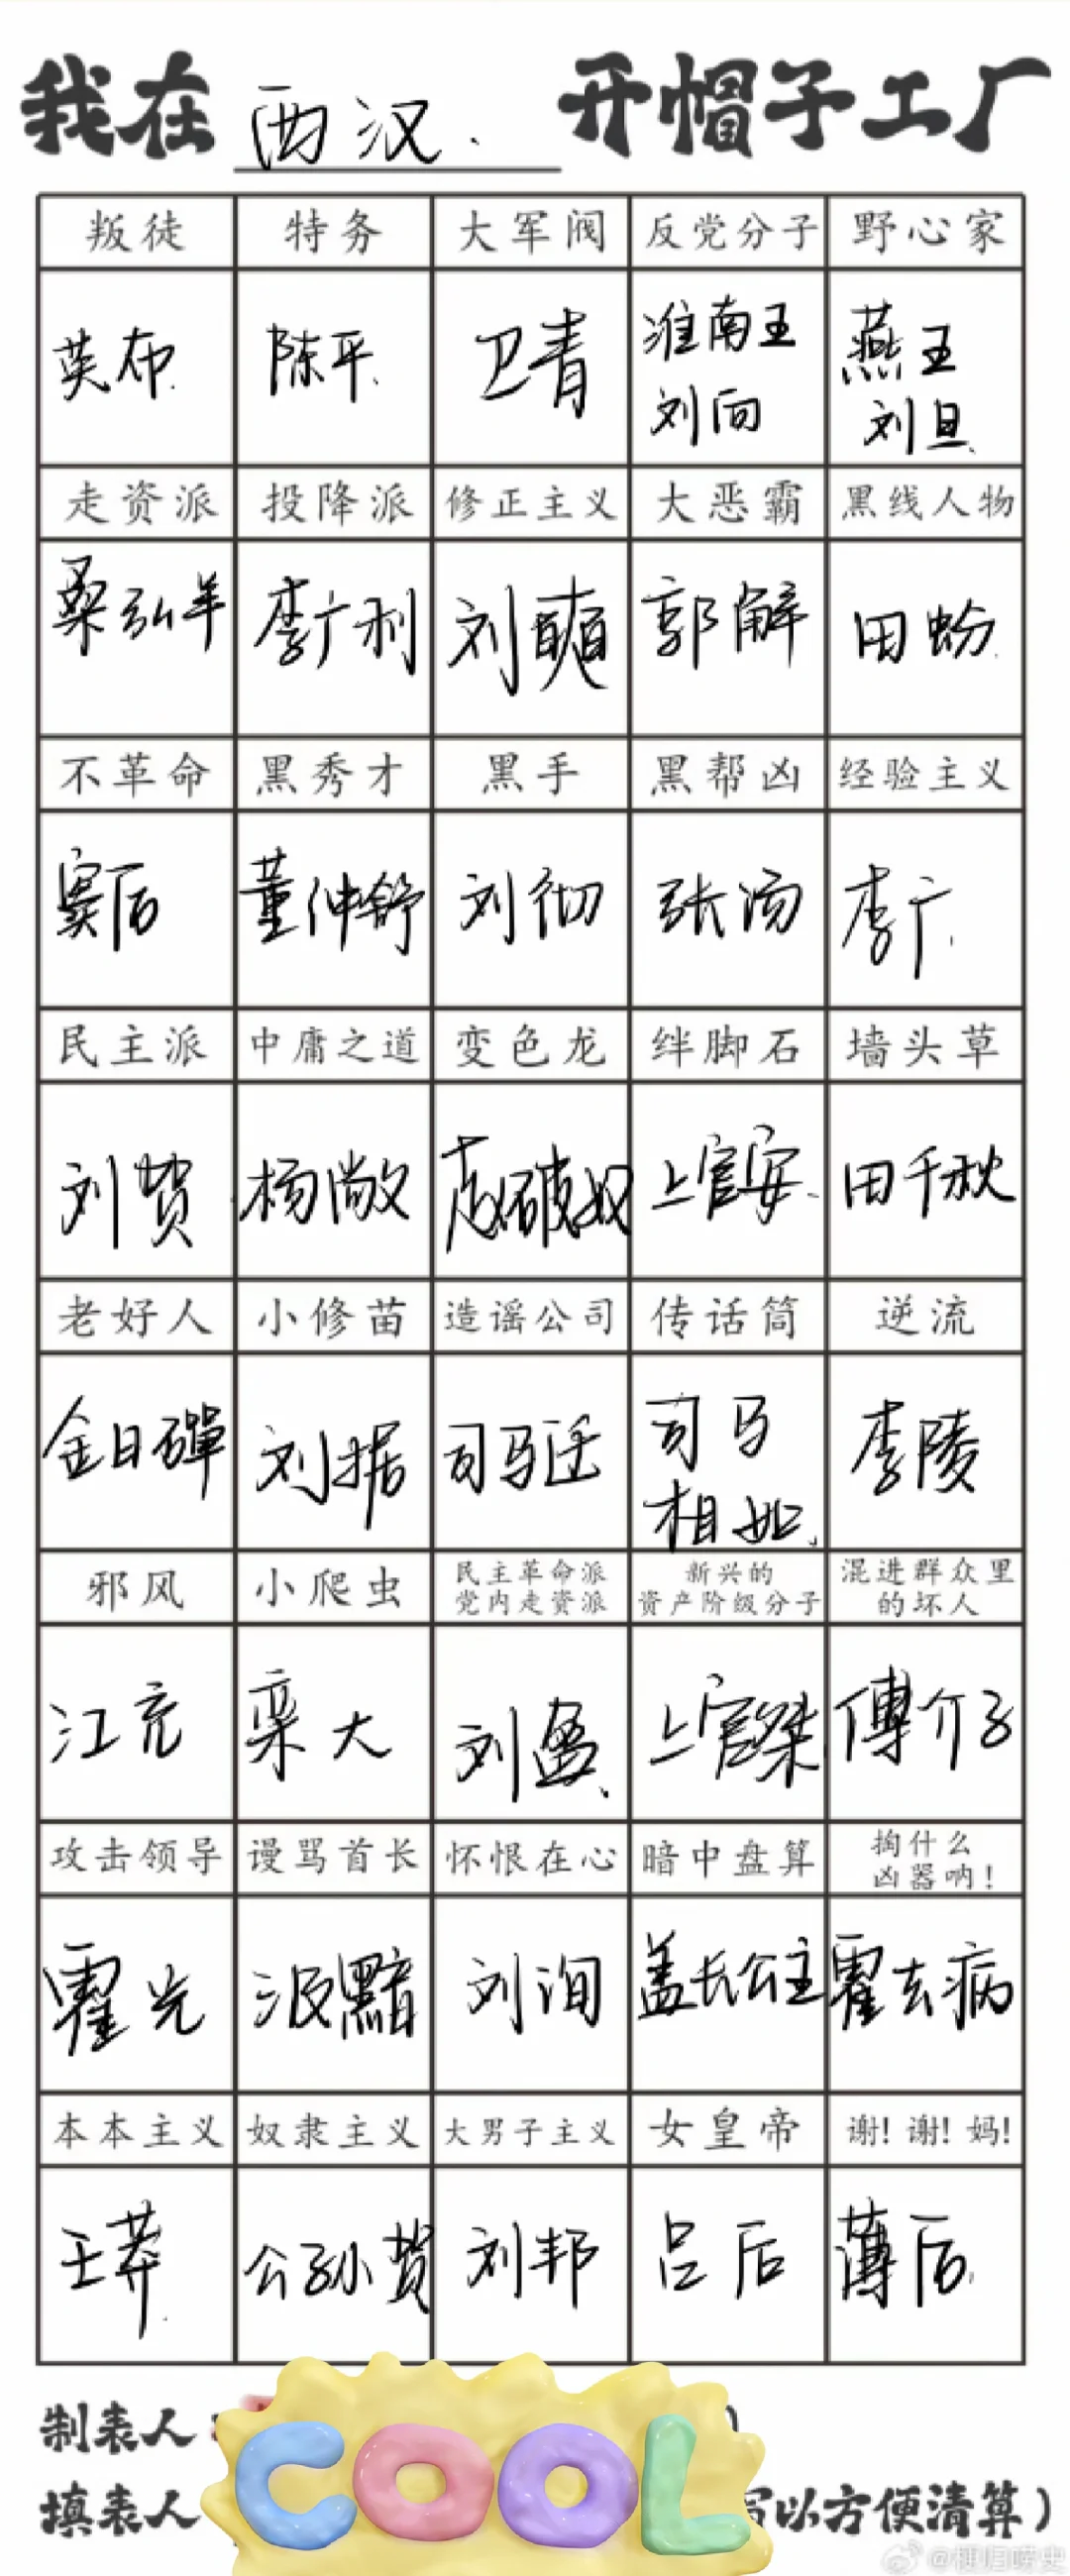 我在 西汉. 开帽子工厂
叛徒 特务 大军阀 反党分子 野心家
英布. 陈平. 卫青 淮南王 燕王
刘向 刘旦.
走资派 投降派 修正主义 大恶霸 黑线人物
桑弘羊 李广利 刘奭 郭解 田蚡.
不革命 黑秀才 黑手 黑帮凶 经验主义
窦后 董仲舒 刘彻 张汤 李广.
民主派 中庸之道 变色龙 绊脚石 墙头草
刘贺. 杨敞 赵破奴 上官安. 田千秋
老好人 小修苗 造谣公司 传话筒 逆流
金日磾 刘据 司马迁 司马 李陵
相如.
邪风 小爬虫 民主革命派 新兴的 混进群众里
党内走资派 资产阶级分子 的坏人
江充 栾大 刘盈. 上官桀 傅介子
攻击领导 谩骂首长 怀恨在心 暗中盘算 掏什么
凶器呐!
霍光 汲黯 刘询 盖长公主 霍去病
本本主义 奴隶主义 大男子主义 女皇帝 谢!谢!妈!
王莽. 公孙贺 刘邦 吕后 薄后.
制表人:
COOL
填表人 以方便清算)